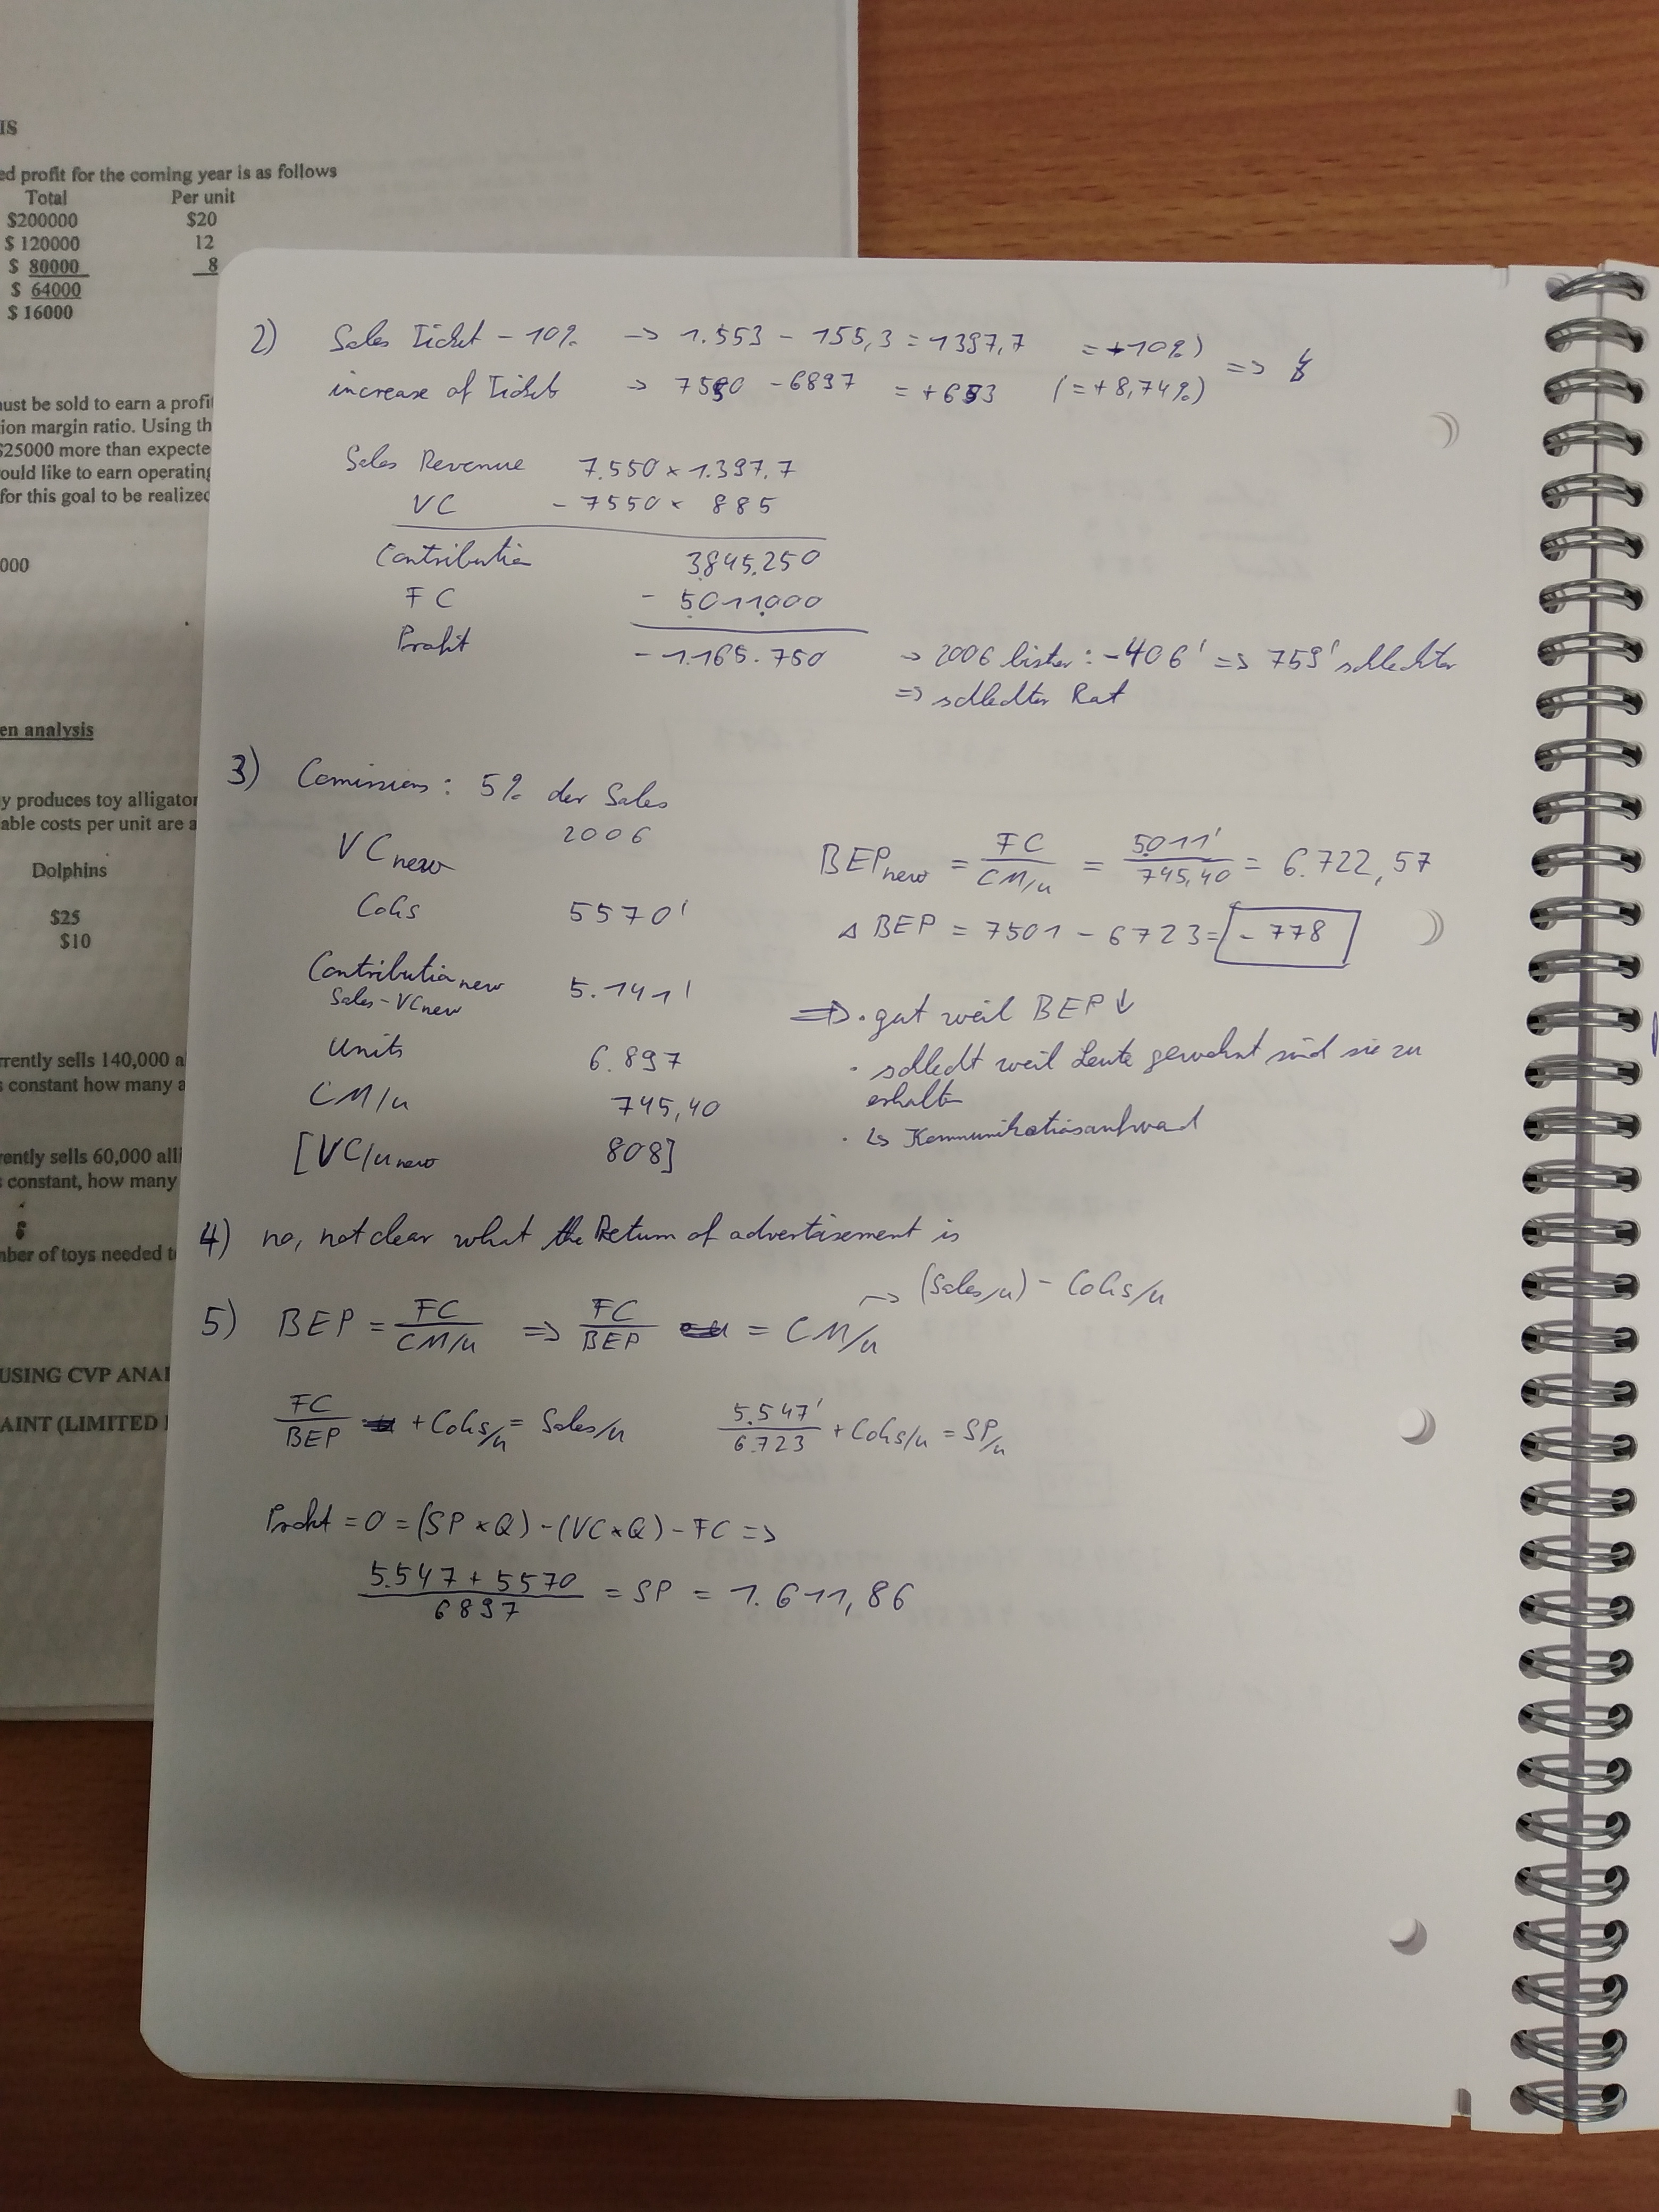 IS
ed profit for the coming year is as follows
Total Per unit
$200000 $20
$ 120000 12
$ 80000 8
$ 64000
$ 16000
must be sold to earn a profi
ion margin ratio. Using th
$25000 more than expecte
ould like to earn operating
for this goal to be realized
000
en analysis
y produces toy alligator
able costs per unit are a
Dolphins
$25
$10
rrently sells 140,000 a
s constant how many a
rently sells 60,000 alli
s constant, how many
8
nber of toys needed t
USING CVP ANAI
AINT (LIMITED
2) Sales Ticket - 10% -> 1.553 - 155,3 = 1397,7 (= +10%)
increase of Tickets -> 7550 - 6897 = + 653 (= +8,74%) =>
Sales Revenue 7.550 x 1.397,7
VC - 7550 x 885
Contribution 3.845.250
FC - 5.011.000
Profit - 1.165.750 -> 2006 bisher: -406' => 759' schlechter
=> schlechter Rat
3) Comissions: 5% der Sales
2006
VC new
CoGs 5570'
Contribution new 5.141'
Sales - VC new
Units 6.897
CM/u 745,40
[VC/u new 808]
BEP new = FC / CM/u = 5.011' / 745,40 = 6.722,57
Δ BEP = 7501 - 6723 = - 778
=> · gut weil BEP ↓
· schlecht weil Leute gewohnt sind sie zu
erhalten
· ↳ Kommunikationsaufwand
4) no, not clear what the Return of advertisement is
5) BEP = FC / CM/u => FC / BEP = CM/u -> (Sales/u) - CoGs/u
FC / BEP + CoGs/u = Sales/u 5.547' / 6.723 + CoGs/u = SP/u
Profit = 0 = (SP x Q) - (VC x Q) - FC =>
5.547 + 5570 / 6897 = SP = 1.611,86